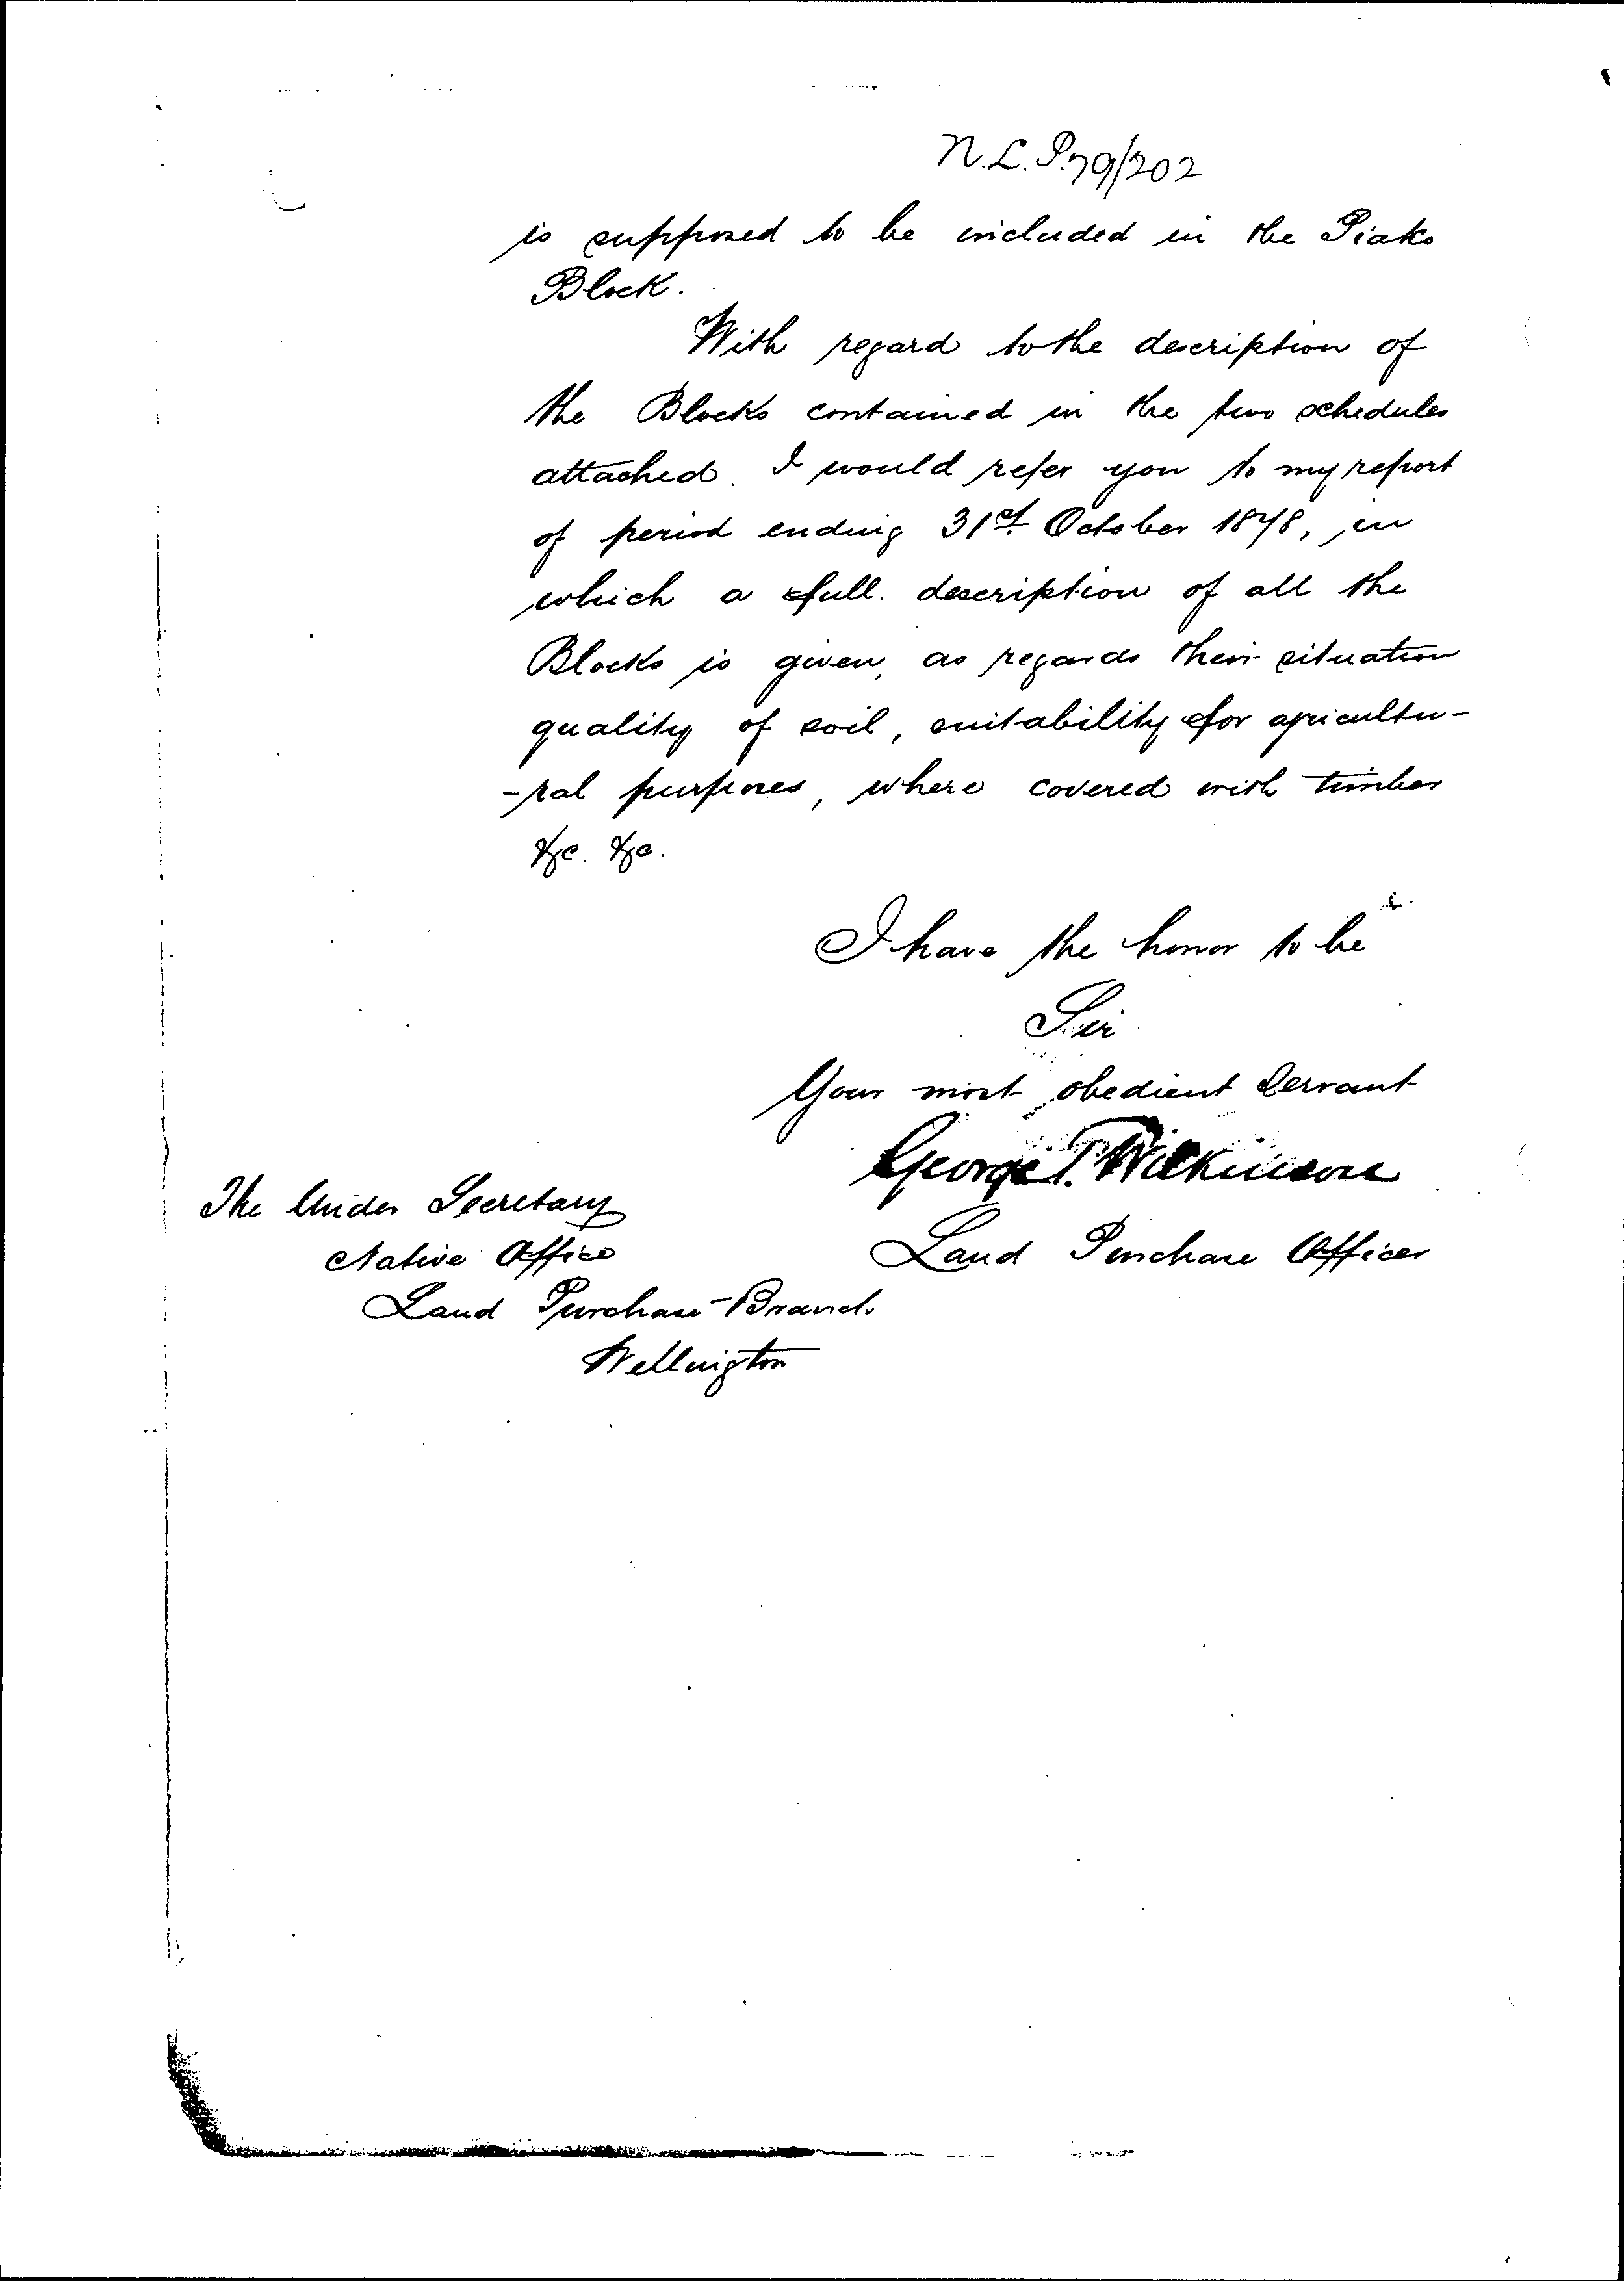 N.L.P. 79/202
is supposed to be included in the Piako
Block.
With regard to the description of
the Blocks contained in the two schedules
attached. I would refer you to my report
of period ending 31st October 1878, in
which a full. description of all the
Blocks is given, as regards their situation
quality of soil, suitability for agricultu-
-ral purposes, where covered with timber
&c. &c.
I have the honor to be
Sir
Your most obedient Servant
George T. Wilkinson
Land Purchase Officer
The Under Secretary
Native Office
Land Purchase Branch
Wellington